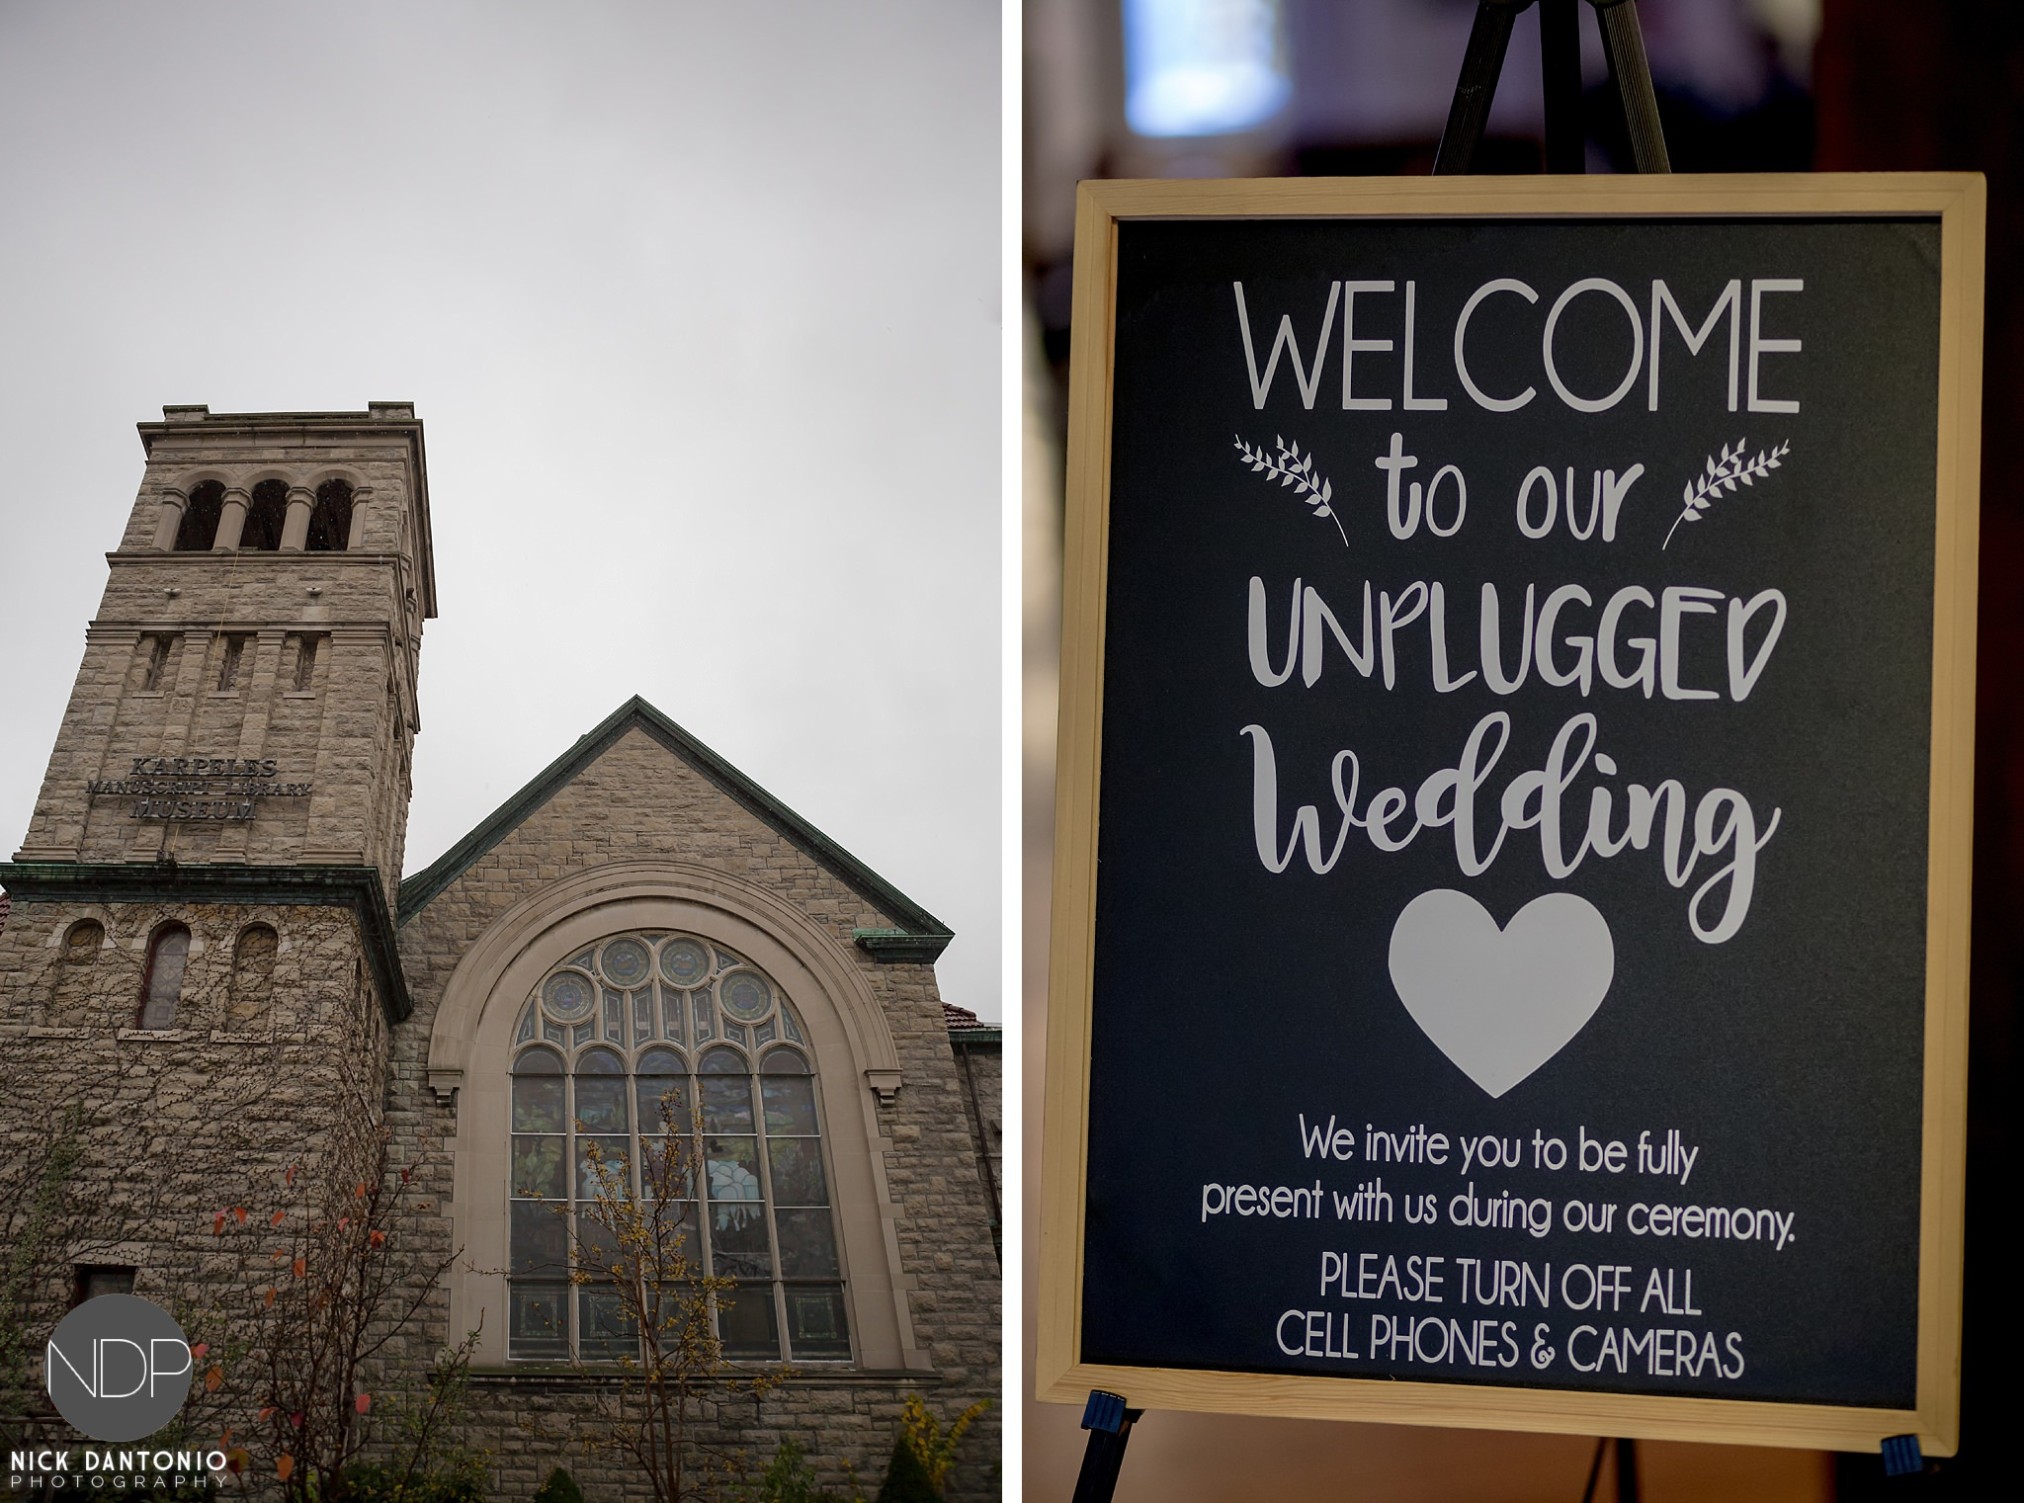 KARPELES
MANUSCRIPT LIBRARY
MUSEUM
NDP
NICK DANTONIO
PHOTOGRAPHY
WELCOME
to our
UNPLUGGED
Wedding
We invite you to be fully
present with us during our ceremony.
PLEASE TURN OFF ALL
CELL PHONES & CAMERAS